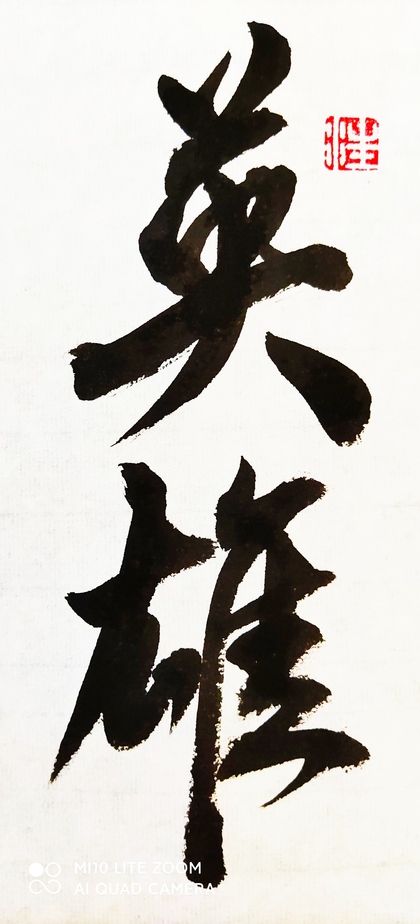 英雄
MI 10 LITE ZOOM
AI QUAD CAMERA